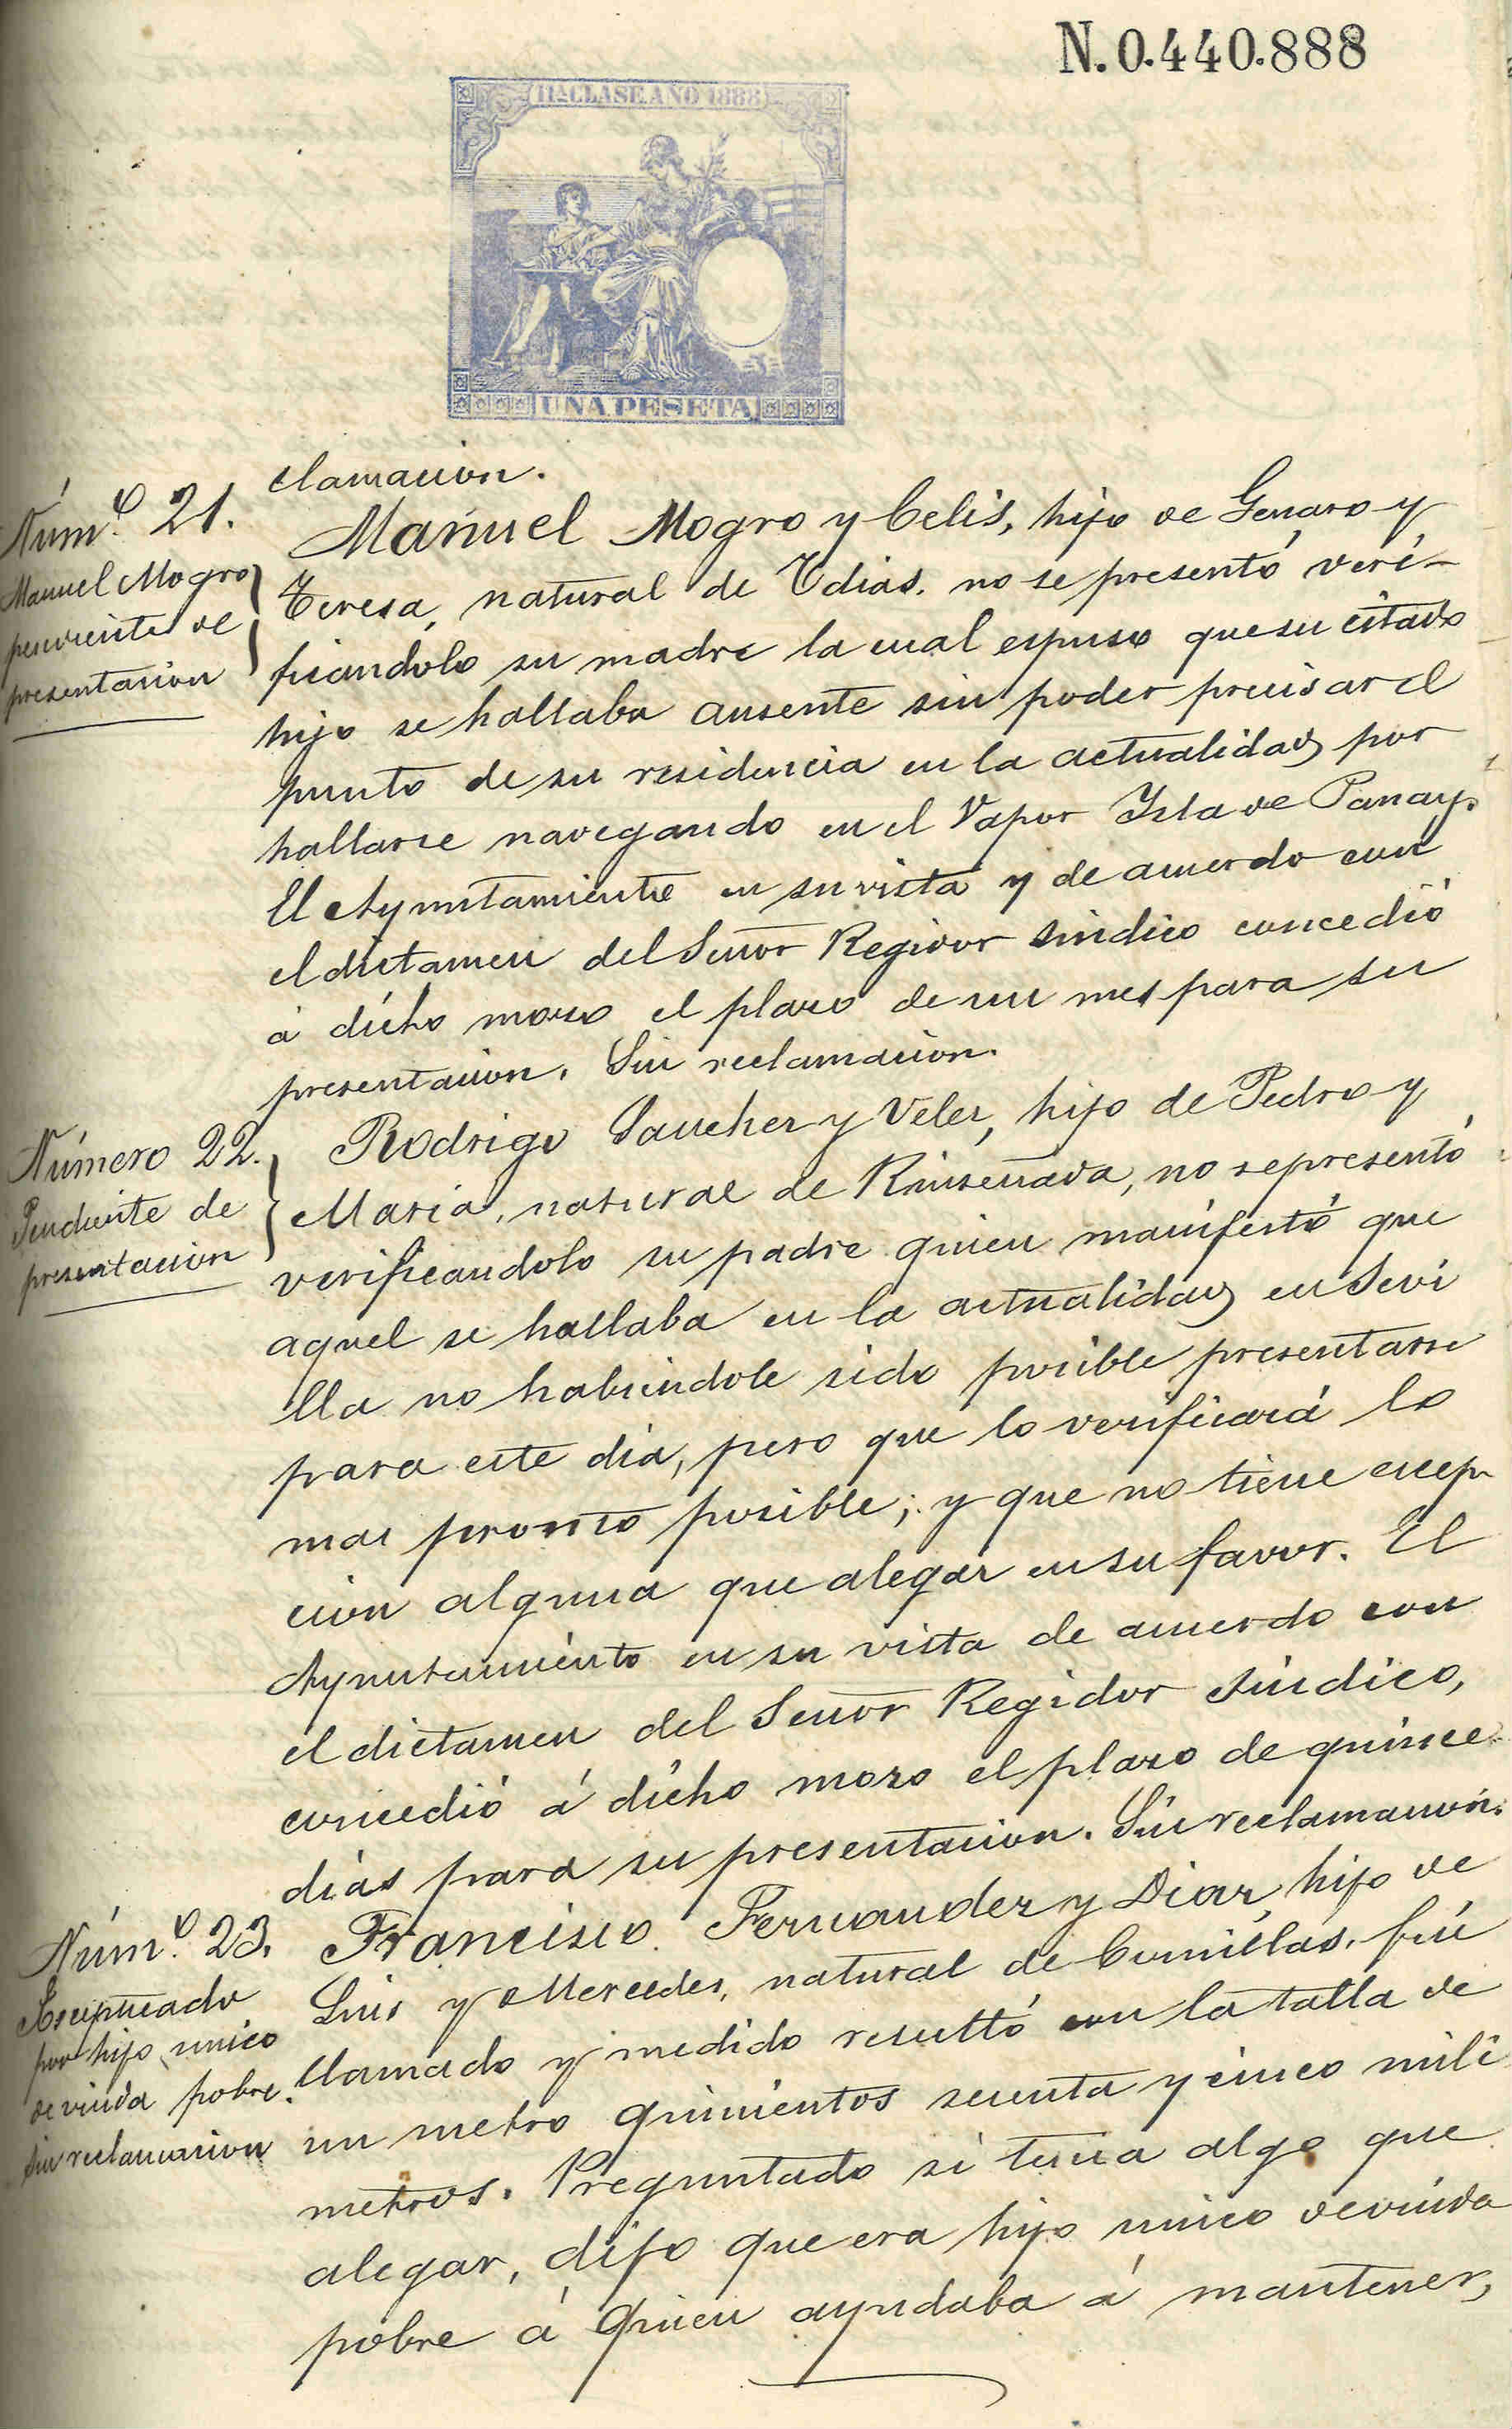 N. 0.440.888
11ª CLASE AÑO 1888
UNA PESETA
clamacion.
Núm.º 21.
Manuel Mogro
pendiente de
presentacion
Manuel Mogro y Celis, hijo de Genaro y
Teresa, natural de Udias. no se presentó veri-
ficandolo su madre la cual espuso que su citado
hijo se hallaba ausente sin poder precisar el
punto de su residencia en la actualidad por
hallarse navegando en el Vapor Isla de Panay.
El Ayuntamiento en su vista y de acuerdo con
el dictamen del Señor Regidor sindico concedió
á dicho mozo el plazo de un mes para su
presentacion. Sin reclamacion.
Número 22.
Pendiente de
presentacion
Rodrigo Sanchez y Velez, hijo de Pedro y
Maria, natural de Ruiseñada, no se presentó
verificandolo su padre quien manifestó que
aquel se hallaba en la actualidad en Sevi
lla no habiendole sido posible presentarse
para este dia, pero que lo verificará lo
mas pronto posible; y que no tiene escep-
cion alguna que alegar en su favor. El
Ayuntamiento en su vista de acuerdo con
el dictamen del Señor Regidor sindico,
concedió á dicho mozo el plazo de quince
dias para su presentacion. Sin reclamacion.
Núm.º 23.
Esceptuado
por hijo unico
de viuda pobre.
sin reclamacion
Francisco Fernandez y Diaz, hijo de
Luis y Mercedes, natural de Comillas. fué
llamado y medido resultó con la talla de
un metro quinientos sesenta y cinco mili
metros. Preguntado si tenia algo que
alegar, dijo que era hijo unico de viuda
pobre á quien ayudaba á mantener,